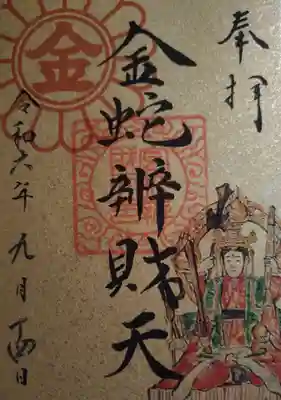 奉拝
金蛇辨財天
金
令和六年九月